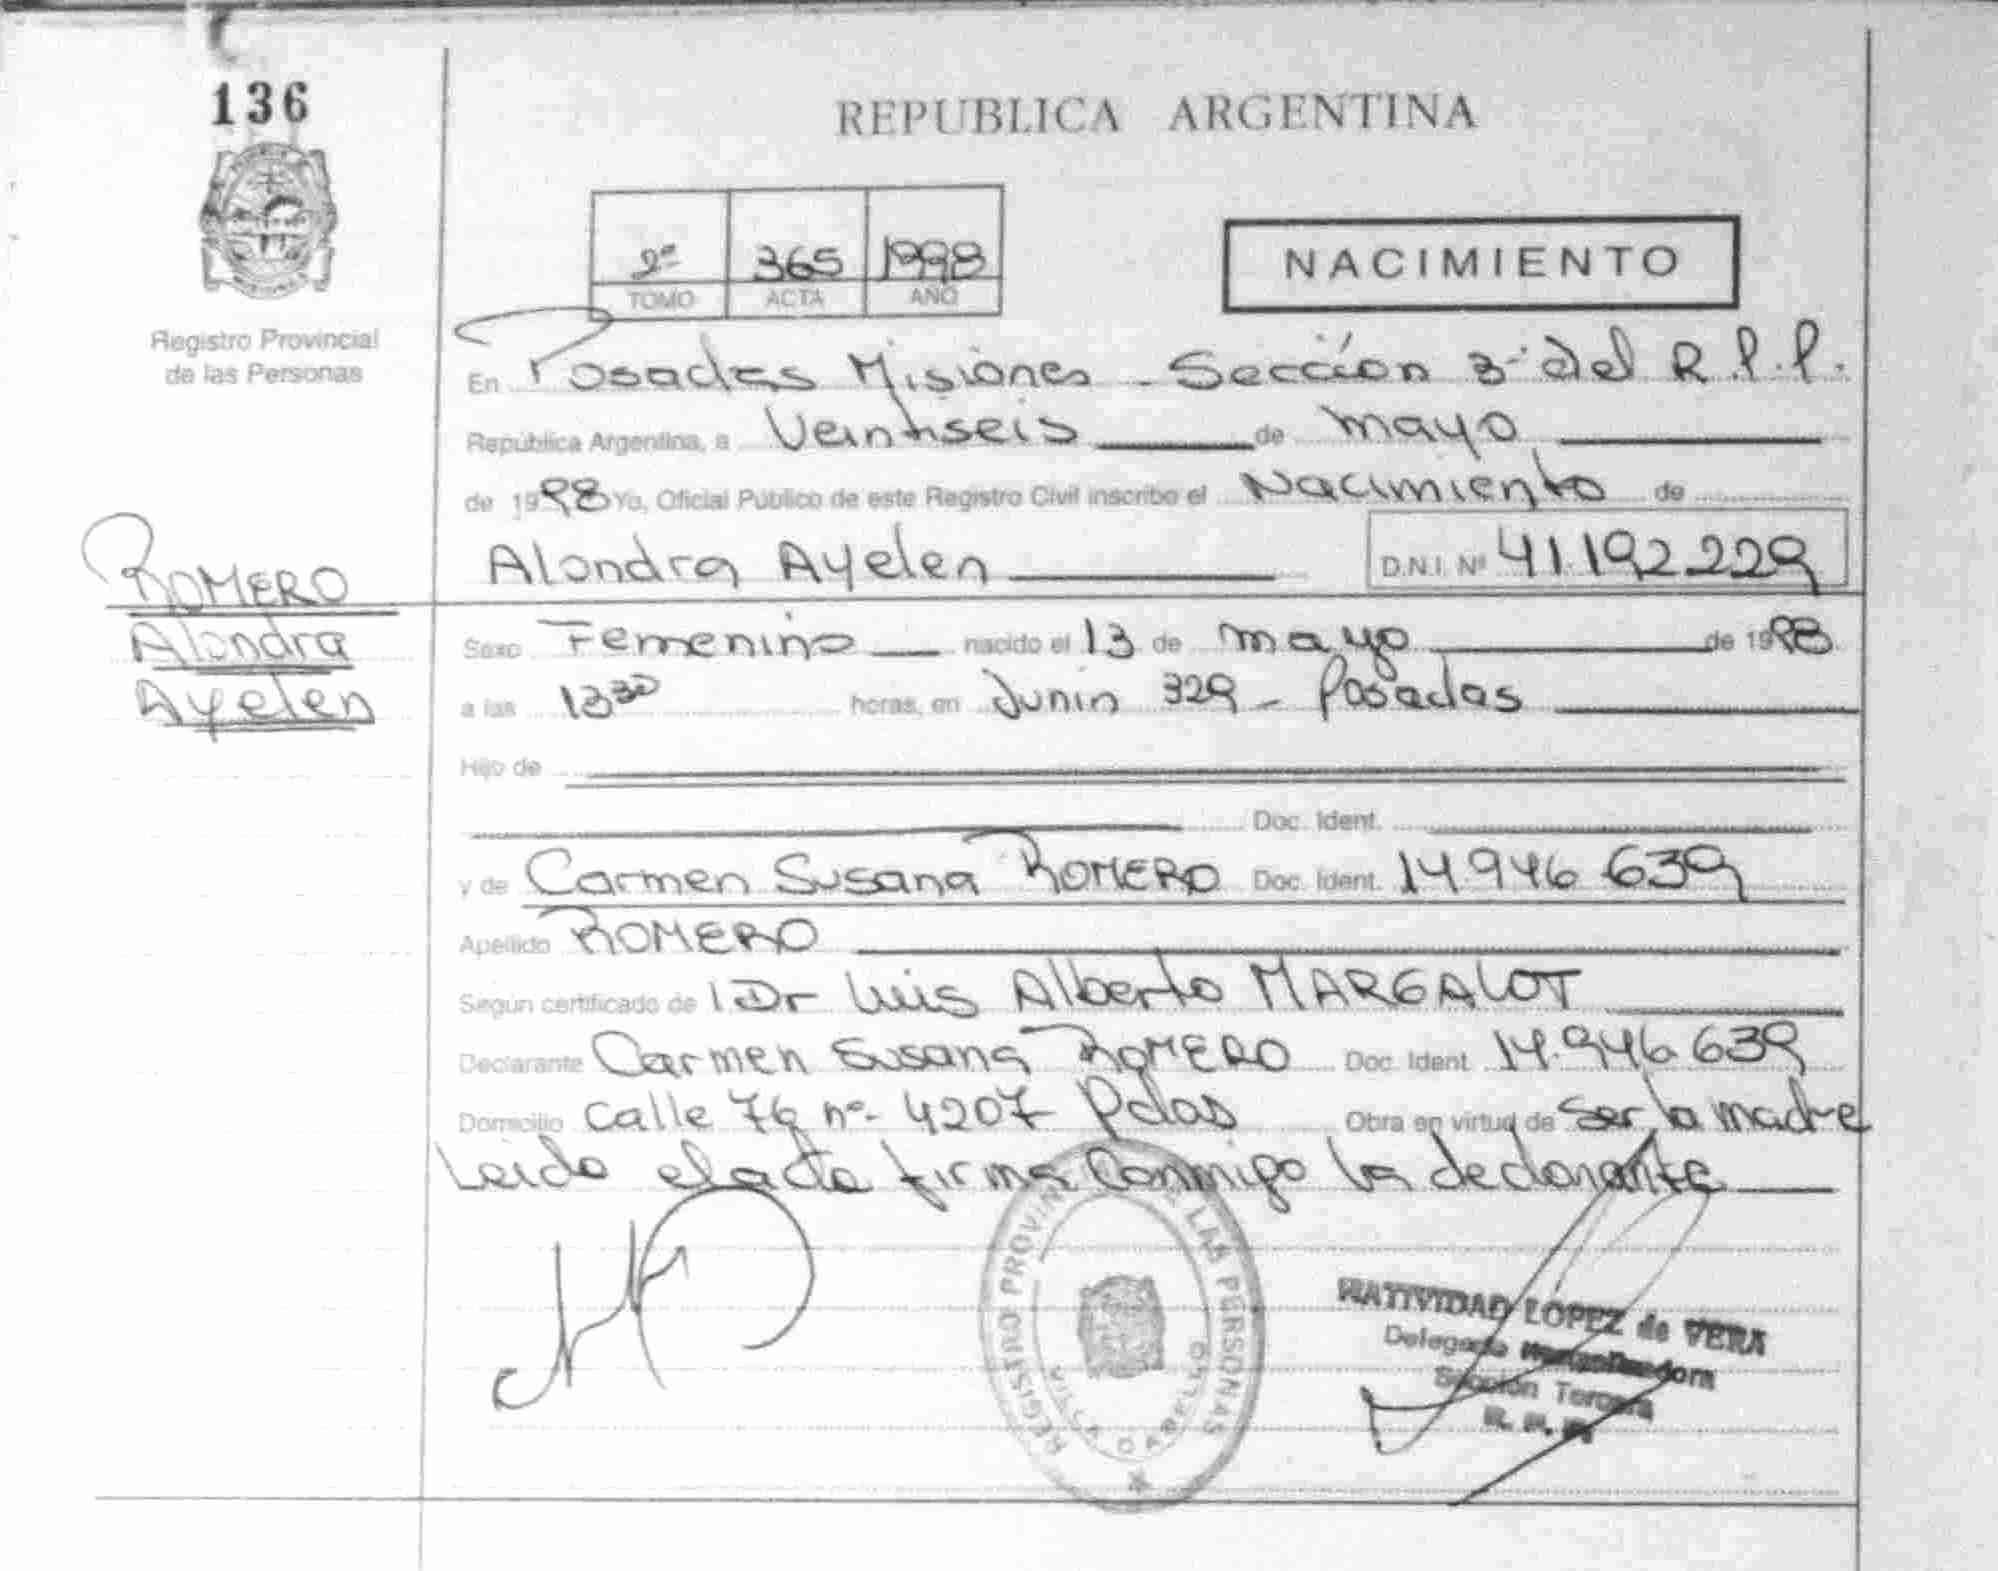 136
REPUBLICA ARGENTINA
2º 365 1998
TOMO ACTA AÑO
NACIMIENTO
Registro Provincial
de las Personas
En Posadas Misiones - Sección 3ª del R.P.P.
República Argentina, a Veintiseis de mayo
de 1998 Yo, Oficial Público de este Registro Civil inscribo el Nacimiento de
Alondra Ayelen D.N.I. Nº 41.192.229
ROMERO
Alondra
Ayelen
Sexo Femenino nacido el 13 de mayo de 1998
a las 13 30 horas, en Junin 329 - Posadas
Hijo de
Doc. Ident.
y de Carmen Susana ROMERO Doc. Ident. 14.946.639
Apellido ROMERO
Según certificado de Dr Luis Alberto MARGALOT
Declarante Carmen Susana ROMERO Doc. Ident. 14.946.639
Domicilio Calle 76 nº 4207 Pdas Obra en virtud de ser la madre
Leida el acta firma conmigo la declarante
REGISTRO PROVINCIAL LAS PERSONAS
VILLA CABELLO
NATIVIDAD LOPEZ de VERA
Delegada
Sección Tercera
R. P. P.